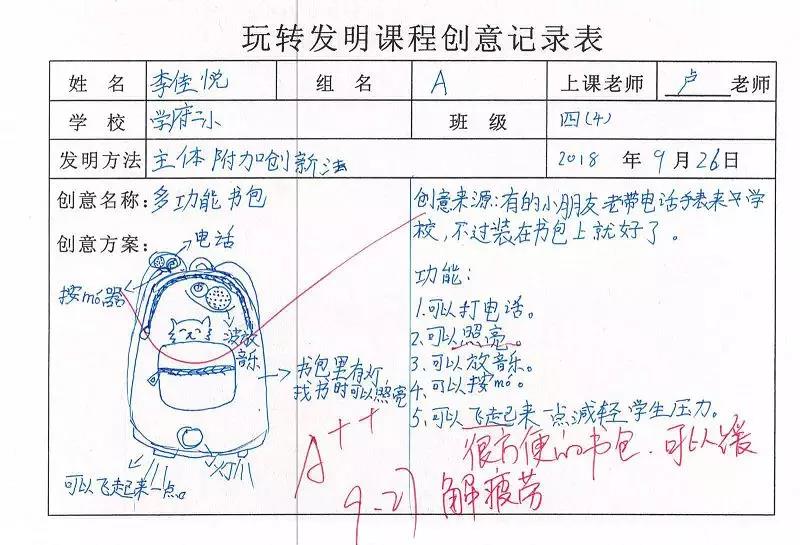 玩转发明课程创意记录表
姓 名 李佳悦 组 名 A 上课老师 卢 老师
学 校 学府二小 班 级 四(4)
发明方法 主体附加创新法 2018 年 9 月 26 日
创意名称:多功能书包
创意方案:
电话
按mó器
播放
音乐
书包里有灯
找书时可以照亮
可以飞起来一点。
灯
创意来源:有的小朋友老带电话手表来
学
校,不过装在书包上就好了。
功能:
1.可以打电话。
2.可以照亮。
3.可以放音乐。
4.可以按mó。
5.可以飞起来一点减轻学生压力。
A++
很方便的书包.可以缓
解疲劳
9-27